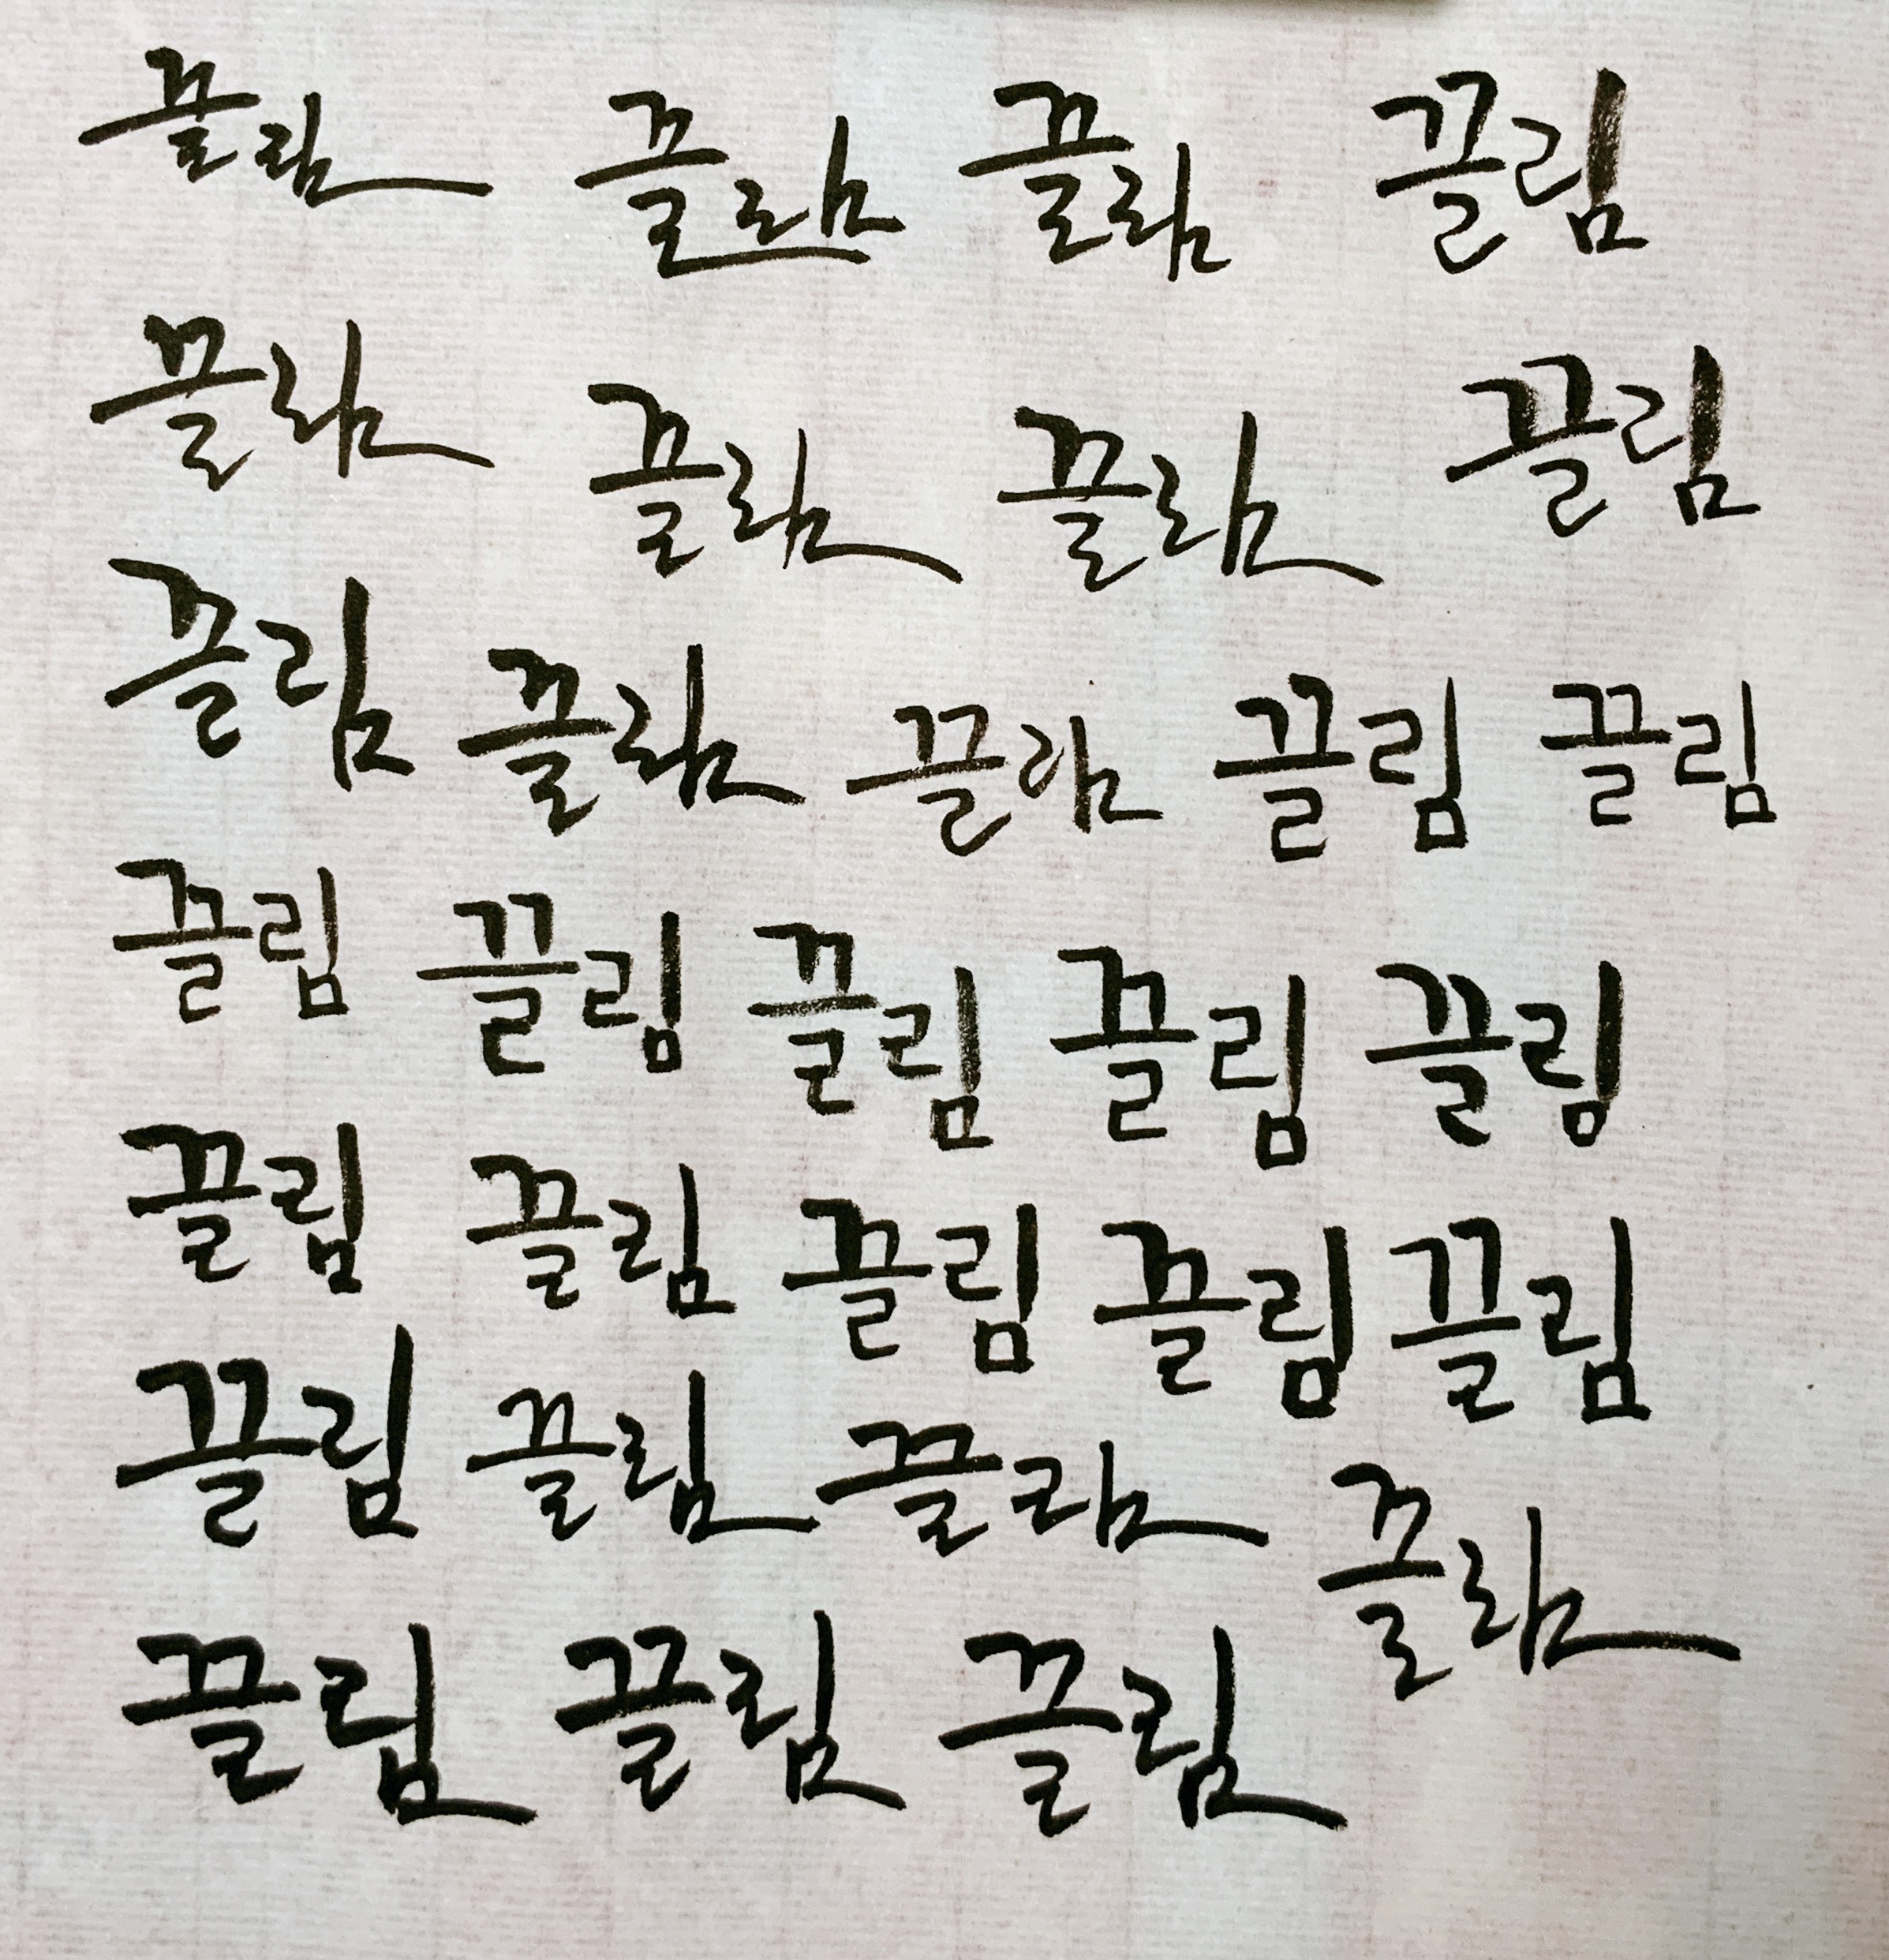 끌림 끌림 끌림 끌림
끌림 끌림 끌림 끌림
끌림 끌림 끌림 끌림 끌림
끌림 끌림 끌림 끌림 끌림
끌림 끌림 끌림 끌림 끌림
끌림 끌림 끌림 끌림
끌림 끌림 끌림